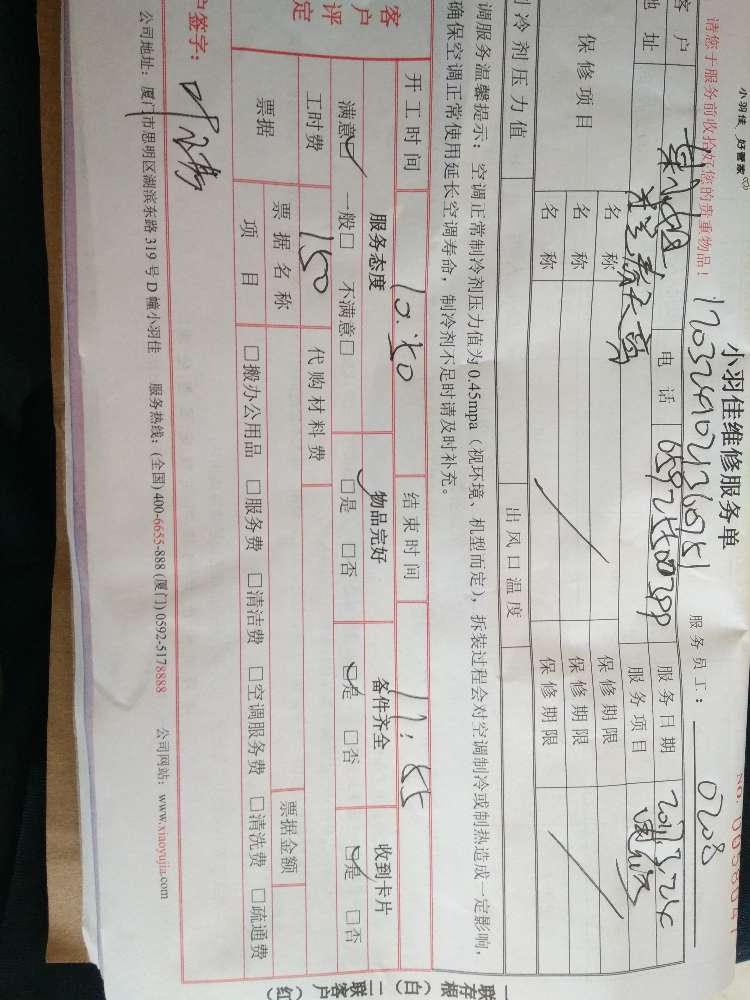 小羽佳 好管家
小羽佳维修服务单
请您于服务前收拾好您的贵重物品！
服务员工：
0208
客户
电话
服务日期
地址
服务项目
保修项目
名称
保修期限
名称
保修期限
名称
保修期限
制冷剂压力值
出风口温度
调服务温馨提示：空调正常制冷剂压力值为0.45mpa（视环境、机型而定），拆装过程会对空调制冷或制热造成一定影响，
确保空调正常使用延长空调寿命，制冷剂不足时请及时补充。
开工时间 10:50 结束时间 11:55
客户评定
服务态度 物品完好 备件齐全 收到卡片
满意☑ 一般□ 不满意□ □是 □否 ☑是 □否 ☑是 □否
工时费 150 代购材料费
票据 票据名称 票据金额
项目 □搬办公用品 □服务费 □清洁费 □空调服务费 □清洗费 □疏通费
户签字：
公司地址：厦门市思明区湖滨东路 319 号 D 幢小羽佳 服务热线：(全国) 400-6655-888 (厦门) 0592-5178888 公司网站：www.xiaoyujia.com
一联存根（白）二联客户（红）